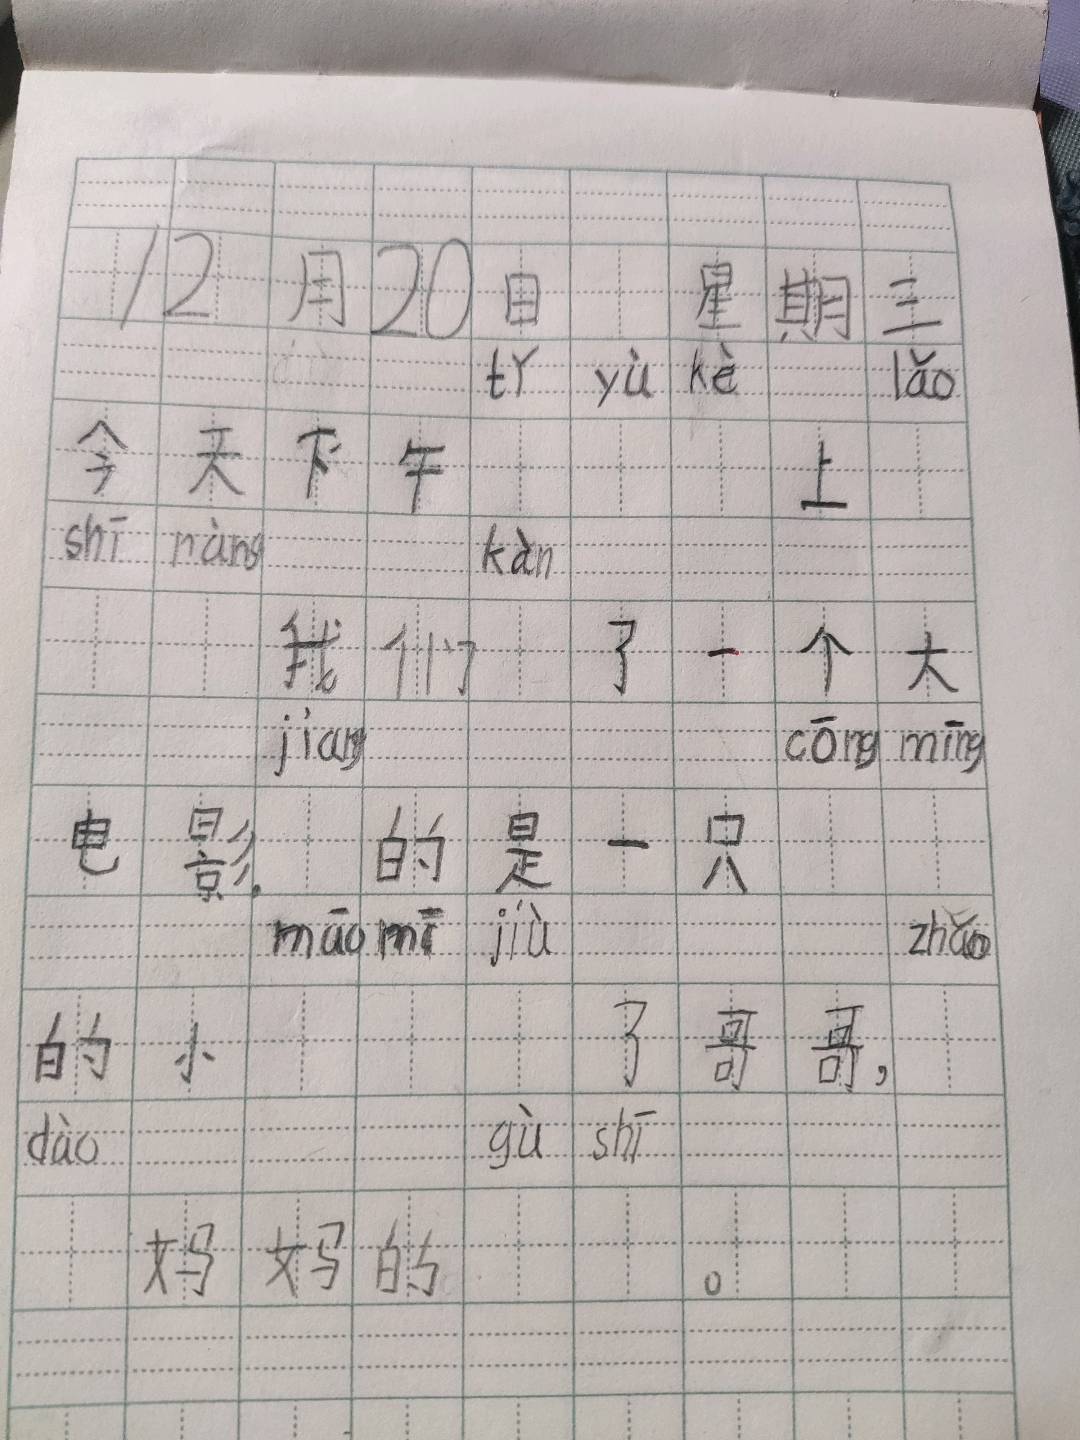 12月20日 星期三
tǐ yù kè lǎo
今天下午 上
shī nàng kàn
我们 了一个大
jiang cōng míng
电影. 的是一只
māo mī jiù zhǎo
的小 了哥哥,
dào gù shī
妈妈的 。